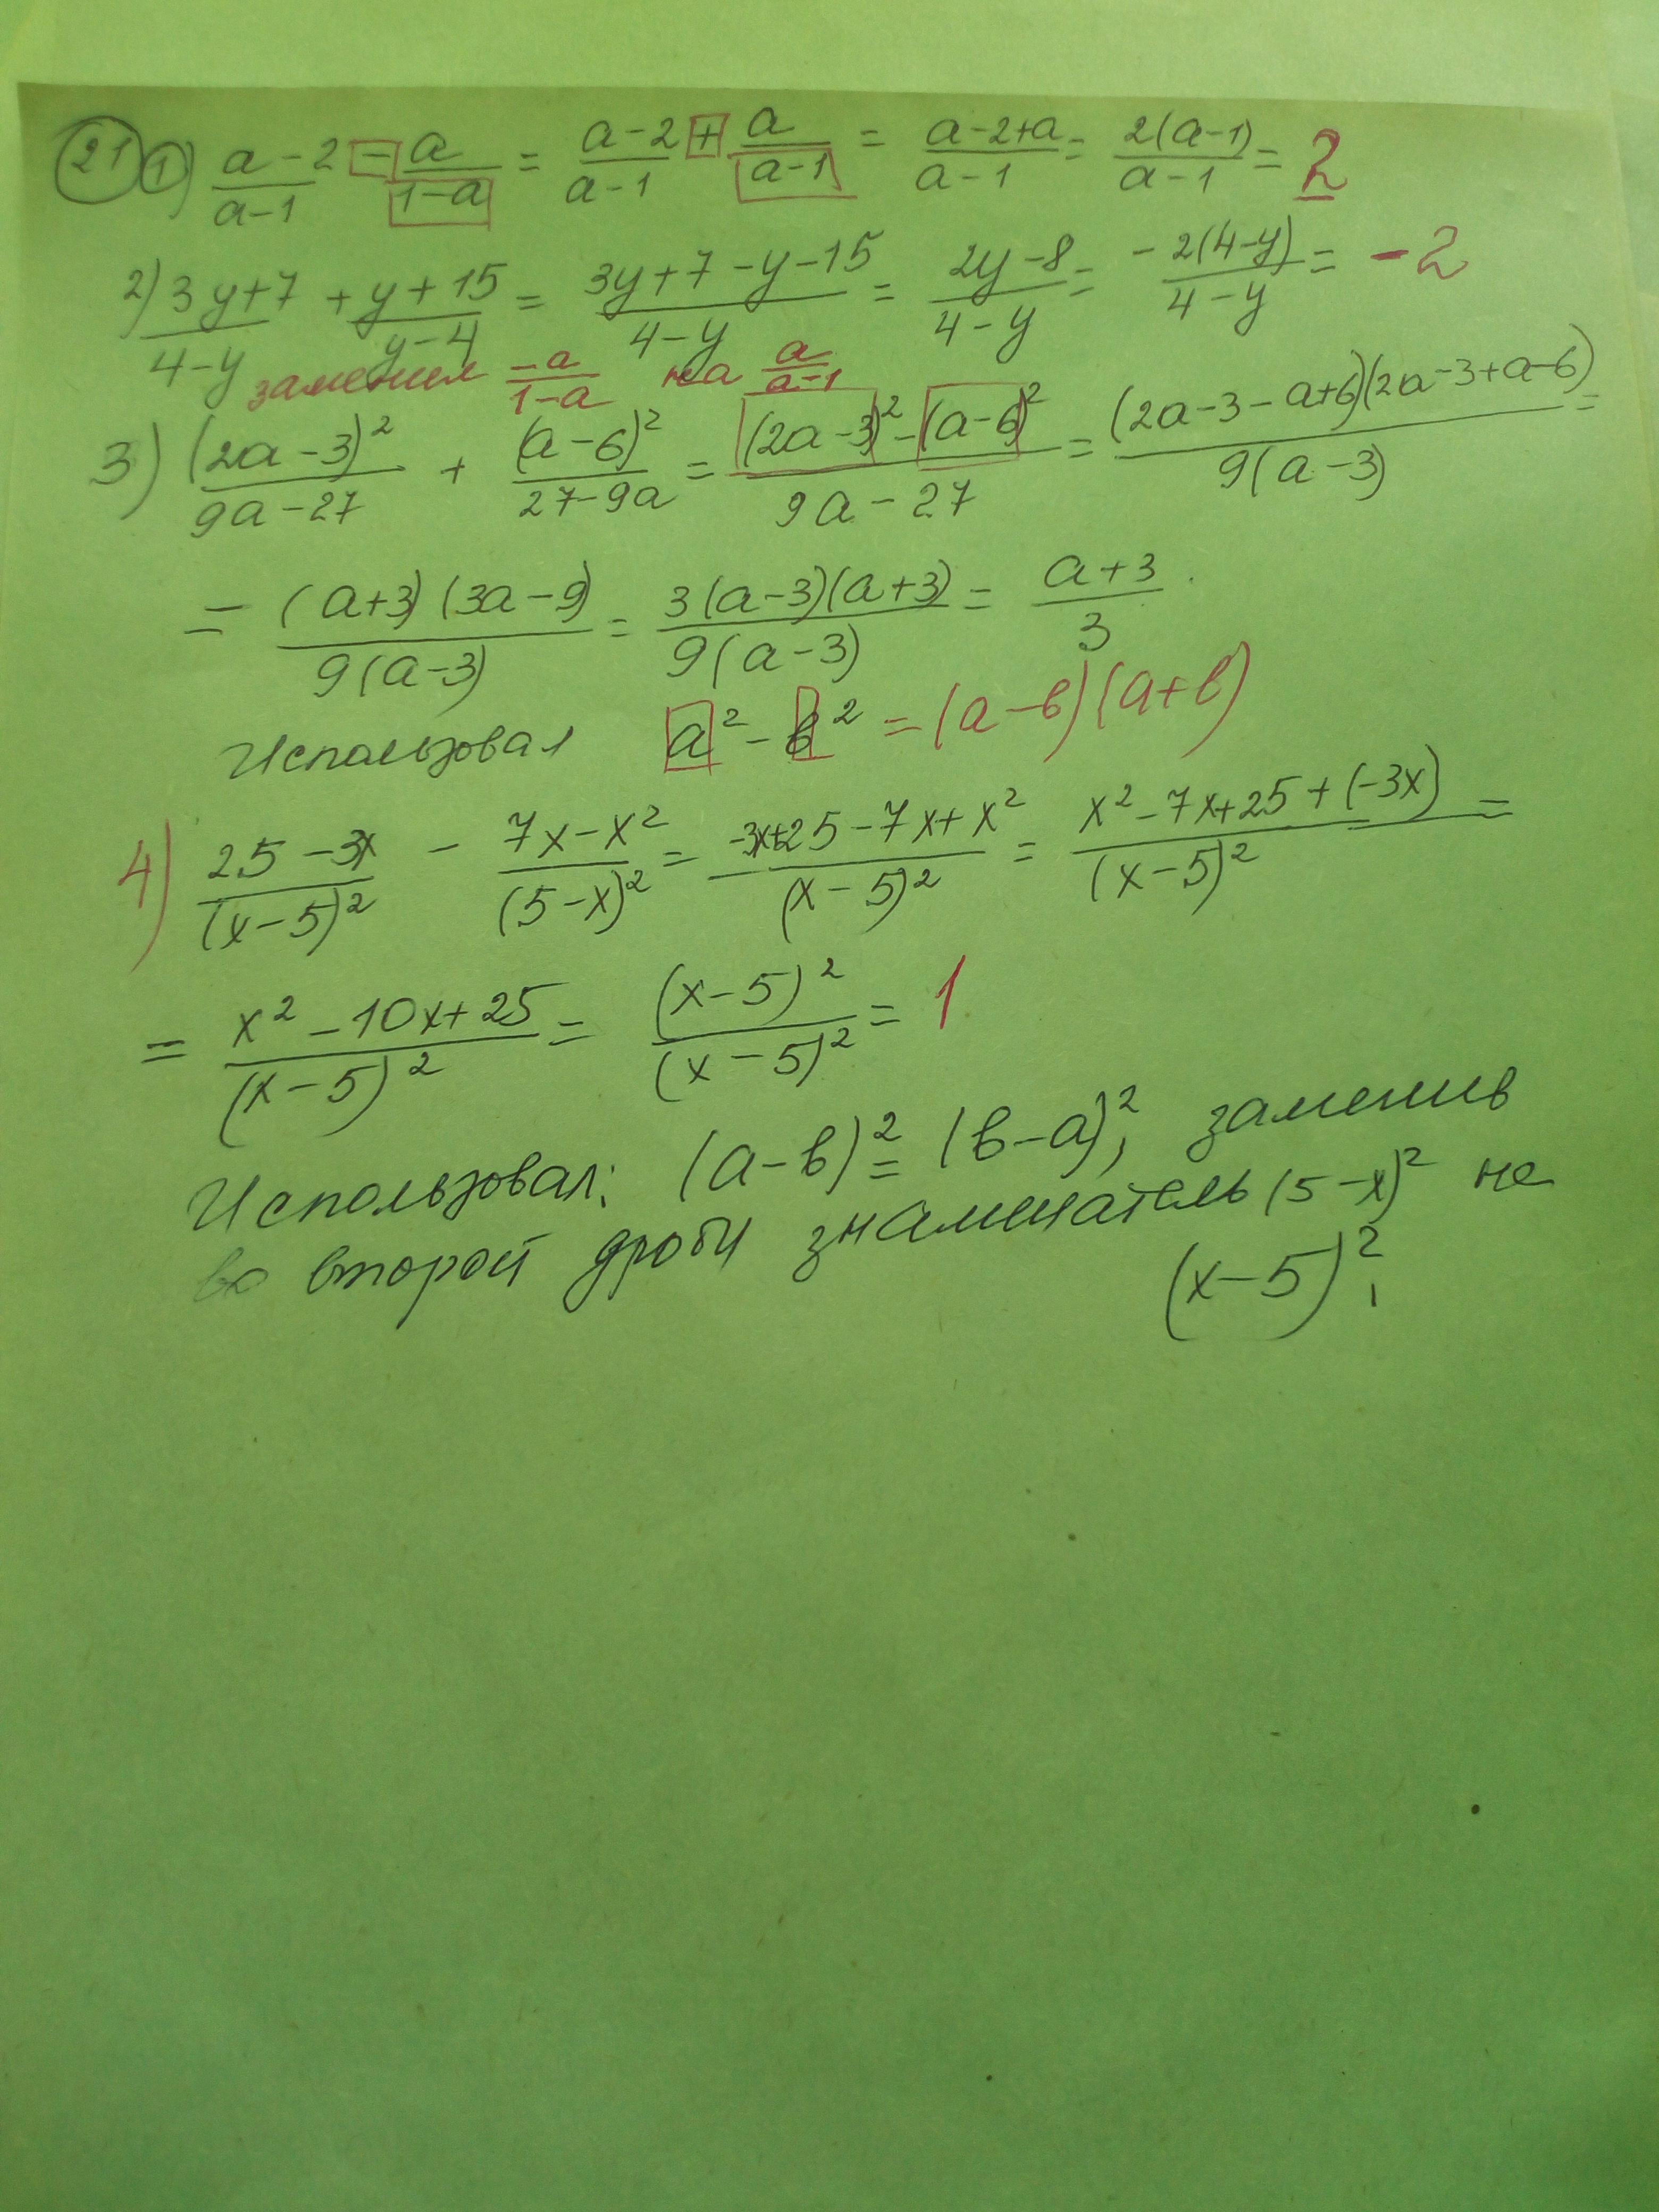 21 1) (a-2)/(a-1) - a/(1-a) = (a-2)/(a-1) + a/(a-1) = (a-2+a)/(a-1) = 2(a-1)/(a-1) = 2
2) (3y+7)/(4-y) + (y+15)/(y-4) = (3y+7-y-15)/(4-y) = (2y-8)/(4-y) = -2(4-y)/(4-y) = -2
заменил -a/(1-a) на a/(a-1)
3) (2a-3)²/(9a-27) + (a-6)²/(27-9a) = ((2a-3)²-(a-6)²)/(9a-27) = (2a-3-a+6)(2a-3+a-6)/(9(a-3)) =
= (a+3)(3a-9)/(9(a-3)) = 3(a-3)(a+3)/(9(a-3)) = (a+3)/3.
Использовал a² - в² = (a-в)(a+в)
4) (25-3x)/(x-5)² - (7x-x²)/(5-x)² = (-3x+25-7x+x²)/(x-5)² = (x²-7x+25+(-3x))/(x-5)² =
= (x²-10x+25)/(x-5)² = (x-5)²/(x-5)² = 1
Использовал: (a-в)² = (в-a)², заменив
во второй дроби знаминатель (5-x)² на
(x-5)²;